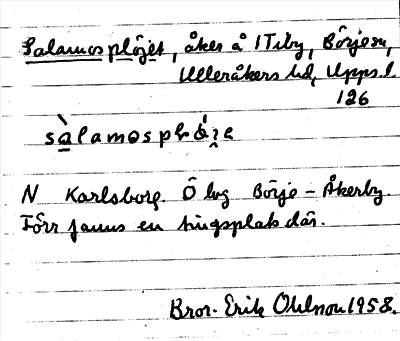 Salamosplöjet, åker å 1 Tiby, Börje sn,
Ulleråkers hd, Upps. l.
126
N Karlsborg. Ö lvg Börje - Åkerby.
Förr fanns en tingsplats där.
Bror-Erik Ohlsson 1958.